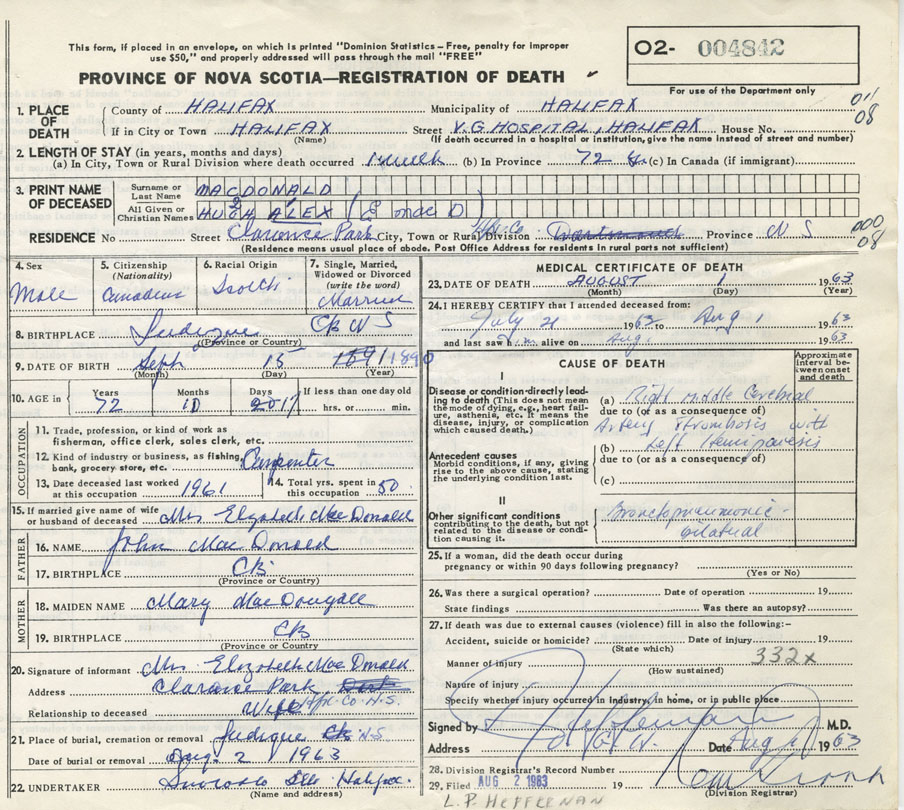 This form, if placed in an envelope, on which is printed "Dominion Statistics—Free, penalty for improper
use $50," and properly addressed will pass through the mail "FREE"
PROVINCE OF NOVA SCOTIA—REGISTRATION OF DEATH
O2- 004842
For use of the Department only
1. PLACE OF DEATH
County of HALIFAX Municipality of HALIFAX
If in City or Town HALIFAX Street V.G. HOSPITAL, HALIFAX House No.
(Name) (If death occurred in a hospital or institution, give the name instead of street and number)
011
08
2. LENGTH OF STAY (in years, months and days)
(a) In City, Town or Rural Division where death occurred 1 week (b) In Province 72 (c) In Canada (if immigrant)
3. PRINT NAME OF DECEASED
Surname or Last Name MACDONALD
All Given or Christian Names HUGH ALEX (E mac D)
RESIDENCE No Street Clarence Park City, Town or Rural Division Hfx. Co Dartmouth Province N S
(Residence means usual place of abode. Post Office Address for residents in rural parts not sufficient)
000
08
4. Sex Male
5. Citizenship (Nationality) Canadian
6. Racial Origin Scotch
7. Single, Married, Widowed or Divorced (write the word) Married
8. BIRTHPLACE Judique CB N S
(Province or Country)
9. DATE OF BIRTH Sept 15 1891 1890
(Month) (Day) (Year)
10. AGE in Years 72 Months 10 Days 17 If less than one day old hrs. or min.
OCCUPATION
11. Trade, profession, or kind of work as
fisherman, office clerk, sales clerk, etc.
12. Kind of industry or business, as fishing,
bank, grocery store, etc. Carpenter
13. Date deceased last worked
at this occupation 1961
14. Total yrs. spent in
this occupation 50
15. If married give name of wife
or husband of deceased Mrs Elizabeth MacDonald
FATHER
16. NAME John MacDonald
17. BIRTHPLACE CB
(Province or Country)
MOTHER
18. MAIDEN NAME Mary MacDougall
19. BIRTHPLACE CB
(Province or Country
20. Signature of informant Mrs Elizabeth MacDonald
Address Clarence Park Dart
Hfx. Co. N.S.
Relationship to deceased Wife
21. Place of burial, cremation or removal Judique CB N.S.
Date of burial or removal Aug. 2 1963
22. UNDERTAKER Halifax
(Name and address)
MEDICAL CERTIFICATE OF DEATH
23. DATE OF DEATH AUGUST 1 1963
(Month) (Day) (Year)
24. I HEREBY CERTIFY that I attended deceased from:
July 21 1963 to Aug 1 1963
and last saw h im alive on Aug. 1 1963
CAUSE OF DEATH
Approximate interval between onset and death
I
Disease or condition directly leading to death (This does not mean the mode of dying, e.g., heart failure, asthenia, etc. It means the disease, injury, or complication which caused death.)
(a) Right middle Cerebral
due to (or as a consequence of)
Artery Thrombosis with
(b) Left Hemiparesis
due to (or as a consequence of)
Antecedent causes
Morbid conditions, if any, giving rise to the above cause, stating the underlying condition last.
(c)
II
Other significant conditions
contributing to the death, but not related to the disease or condition causing it.
Bronchopneumonia -
bilateral
25. If a woman, did the death occur during
pregnancy or within 90 days following pregnancy?
(Yes or No)
26. Was there a surgical operation? Date of operation 19
State findings Was there an autopsy?
27. If death was due to external causes (violence) fill in also the following:-
Accident, suicide or homicide? Date of injury 19
(State which)
Manner of injury 332x
(How sustained)
Nature of injury
Specify whether injury occurred in industry, in home, or in public place
Signed by M.D.
Address Date Aug 1 1963
28. Division Registrar's Record Number
29. Filed AUG 2 1963 19
(Division Registrar)
L. P. HEFFERNAN